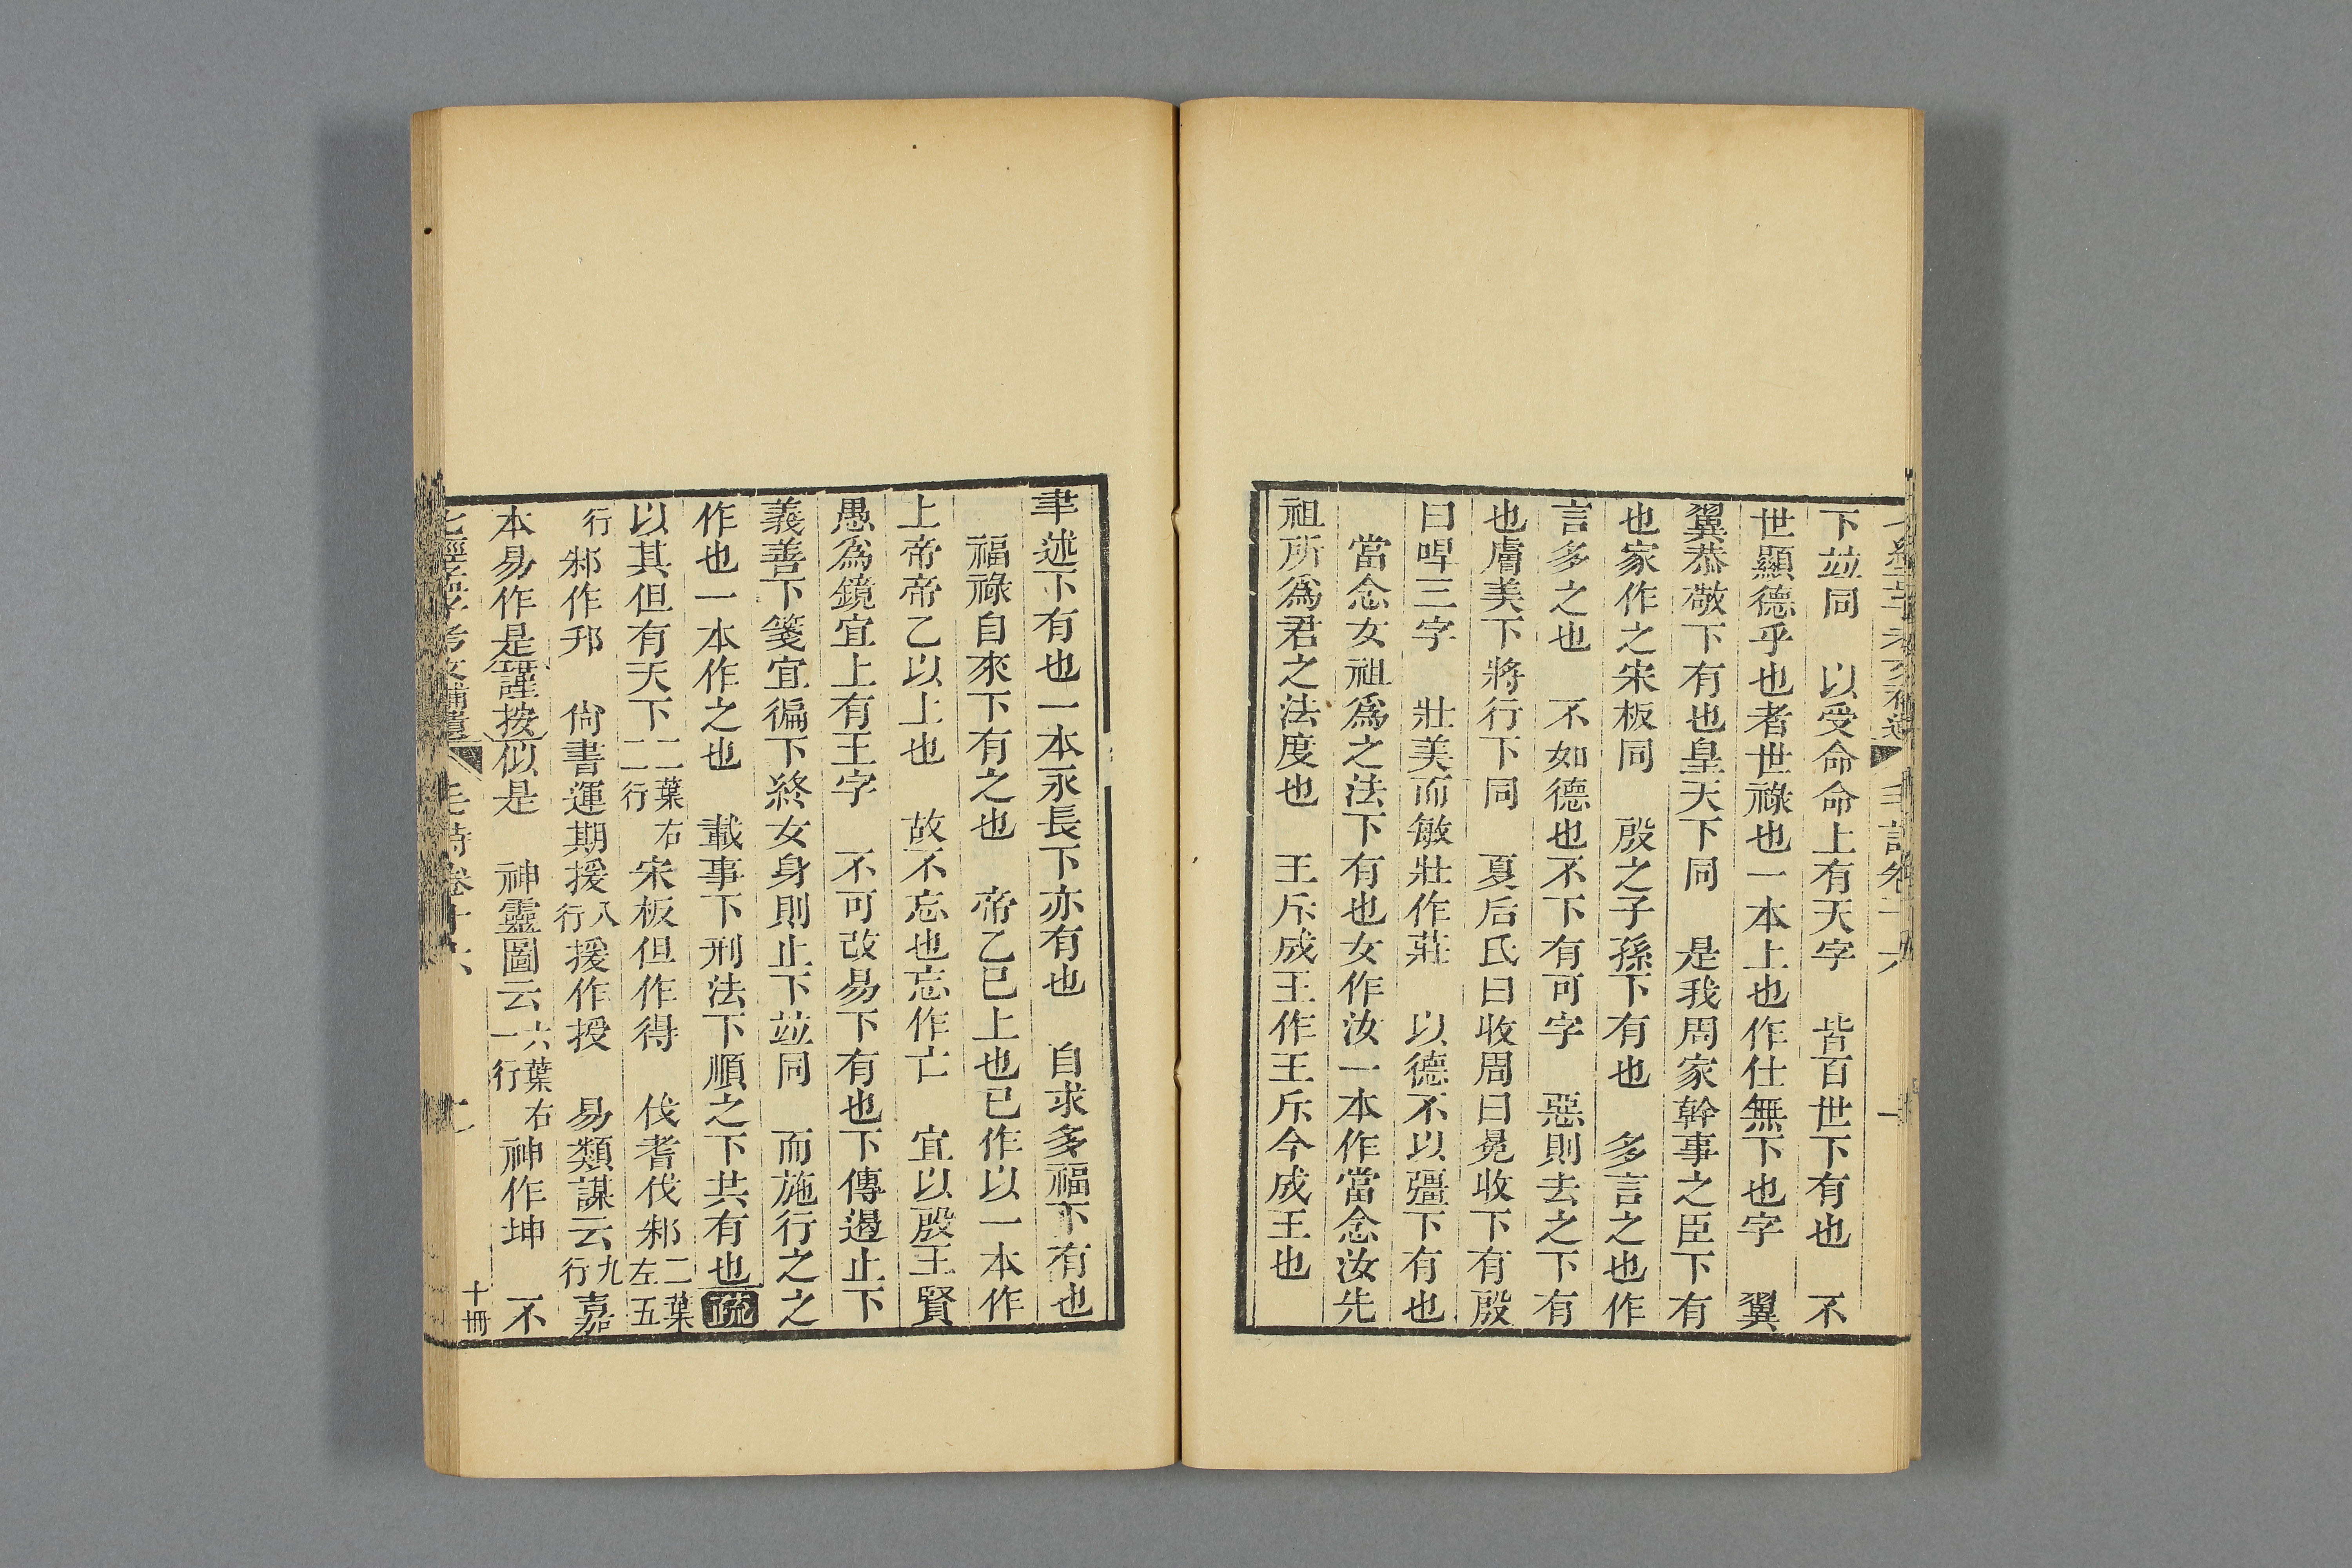 下竝同　以受命命上有天字　皆百世下有也　不
世顯德乎也者世祿也一本上也作仕無下也字　翼
翼恭敬下有也皇天下同　是我周家幹事之臣下有
也家作之宋板同　殷之子孫下有也　多言之也作
言多之也　不如德也不下有可字　惡則去之下有
也膚美下將行下同　夏后氏曰收周曰冕收下有殷
曰哻三字　壯美而敏壯作莊　以德不以彊下有也
當念女祖爲之法下有也女作汝一本作當念汝先
祖所爲君之法度也　王斥成王作王斥今成王也
聿述下有也一本永長下亦有也　自求多福下有也
福祿自來下有之也　帝乙巳上也巳作以一本作
上帝帝乙以上也　故不忘也忘作亡　宜以殷王賢
愚爲鏡宜上有王字　不可改易下有也下傳遏止下
義善下箋宜徧下終女身則止下竝同　而施行之之
作也一本作之也　載事下刑法下順之下共有也疏
以其但有天下二葉右二行宋板但作得　伐耆伐邾二葉左五
行邾作邘　尙書運期援八行援作授　易類謀云九行嘉
本易作是謹按似是　神靈圖云六葉右一行神作坤　不
七經孟子考文補遺　毛詩卷十六　十冊